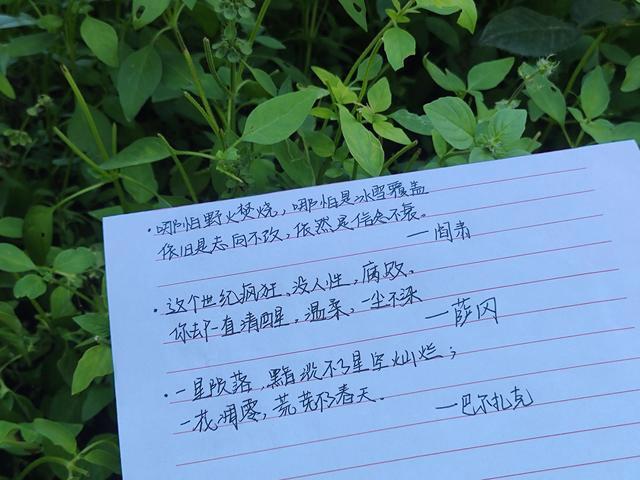 ·哪怕野火焚烧，哪怕是冰雪覆盖
依旧是志向不改，依然是信念不衰。
—阎肃
·这个世纪疯狂、没人性，腐败。
你却一直清醒，温柔，一尘不染
—萨冈
·一星陨落，黯淡不了星空灿烂；
一花凋零，荒芜不了春天。
—巴尔扎克